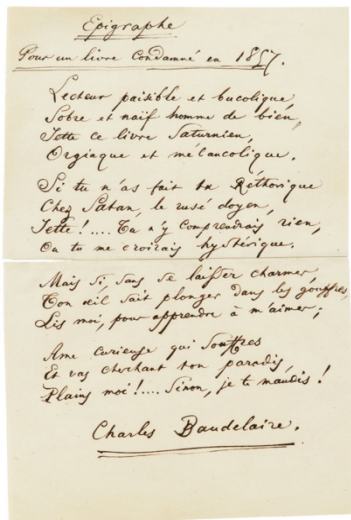 Épigraphe
Pour un livre condamné en 1857.
Lecteur paisible et bucolique
Sobre et naïf homme de bien,
Jette ce livre Saturnien,
Orgiaque et mélancolique.
Si tu n'as fait ta Réthorique
Chez Satan, le rusé doyen,
Jette !.... Tu n'y comprendrais rien,
Ou tu me croirais hystérique.
Mais si, sans se laisser charmer,
Ton œil sait plonger dans les gouffres,
Lis moi, pour apprendre à m'aimer ;
Ame curieuse qui souffres
Et vas cherchant ton paradis,
Plains moi !.... Sinon, je te maudis !
Charles Baudelaire.